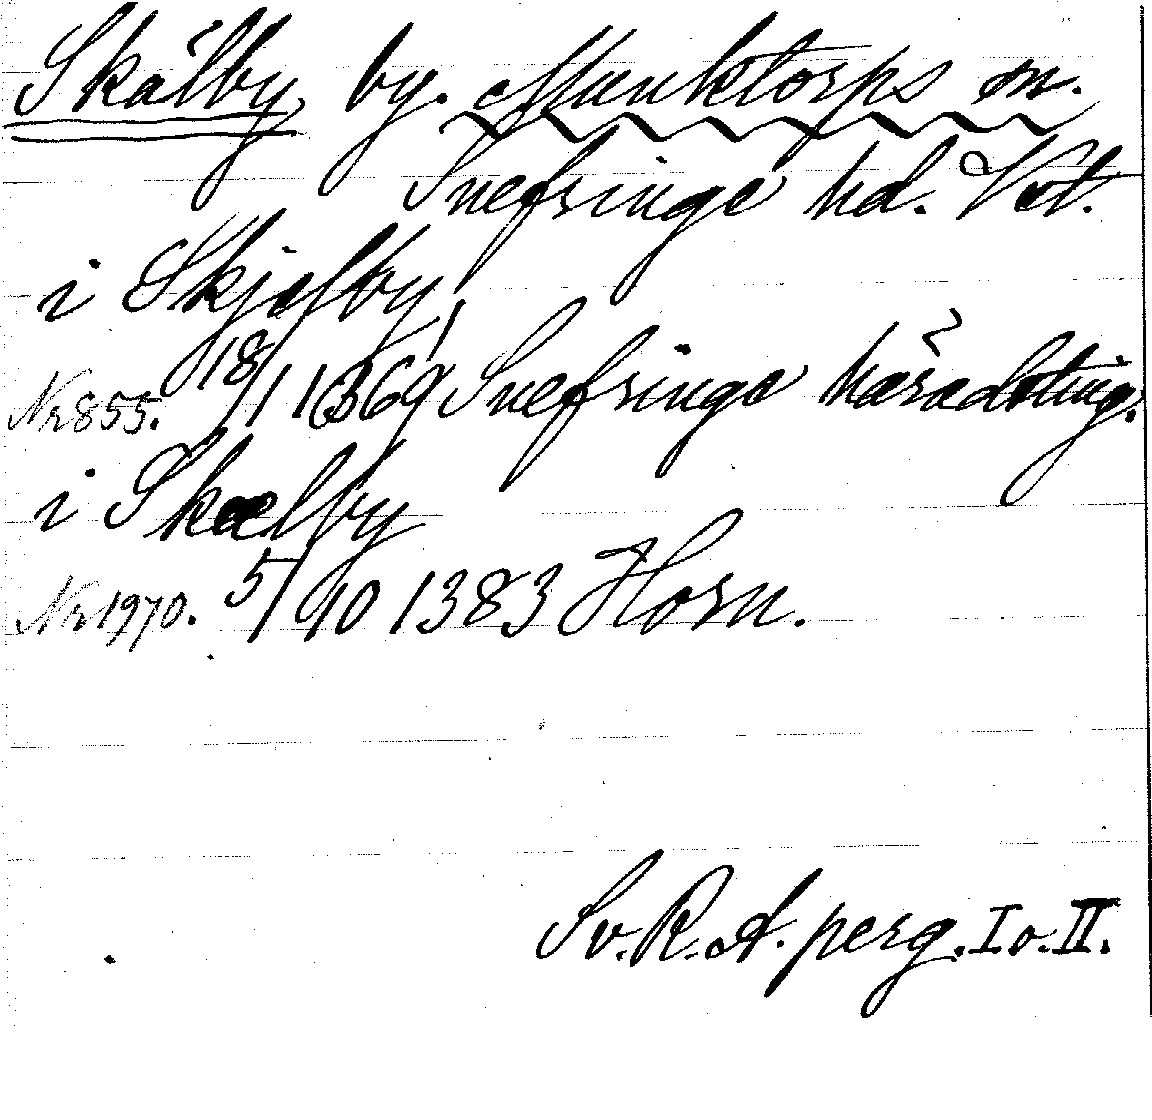 Skälby by. Munktorps sn.
Snefringe hd. Vstl.
i Skjælby
Nr 855. 18/1 1369 Snefringe häradsting.
i Skælby
Nr 1970. 5/10 1383 Horn.
Sv. R. A. perg. I o. II.